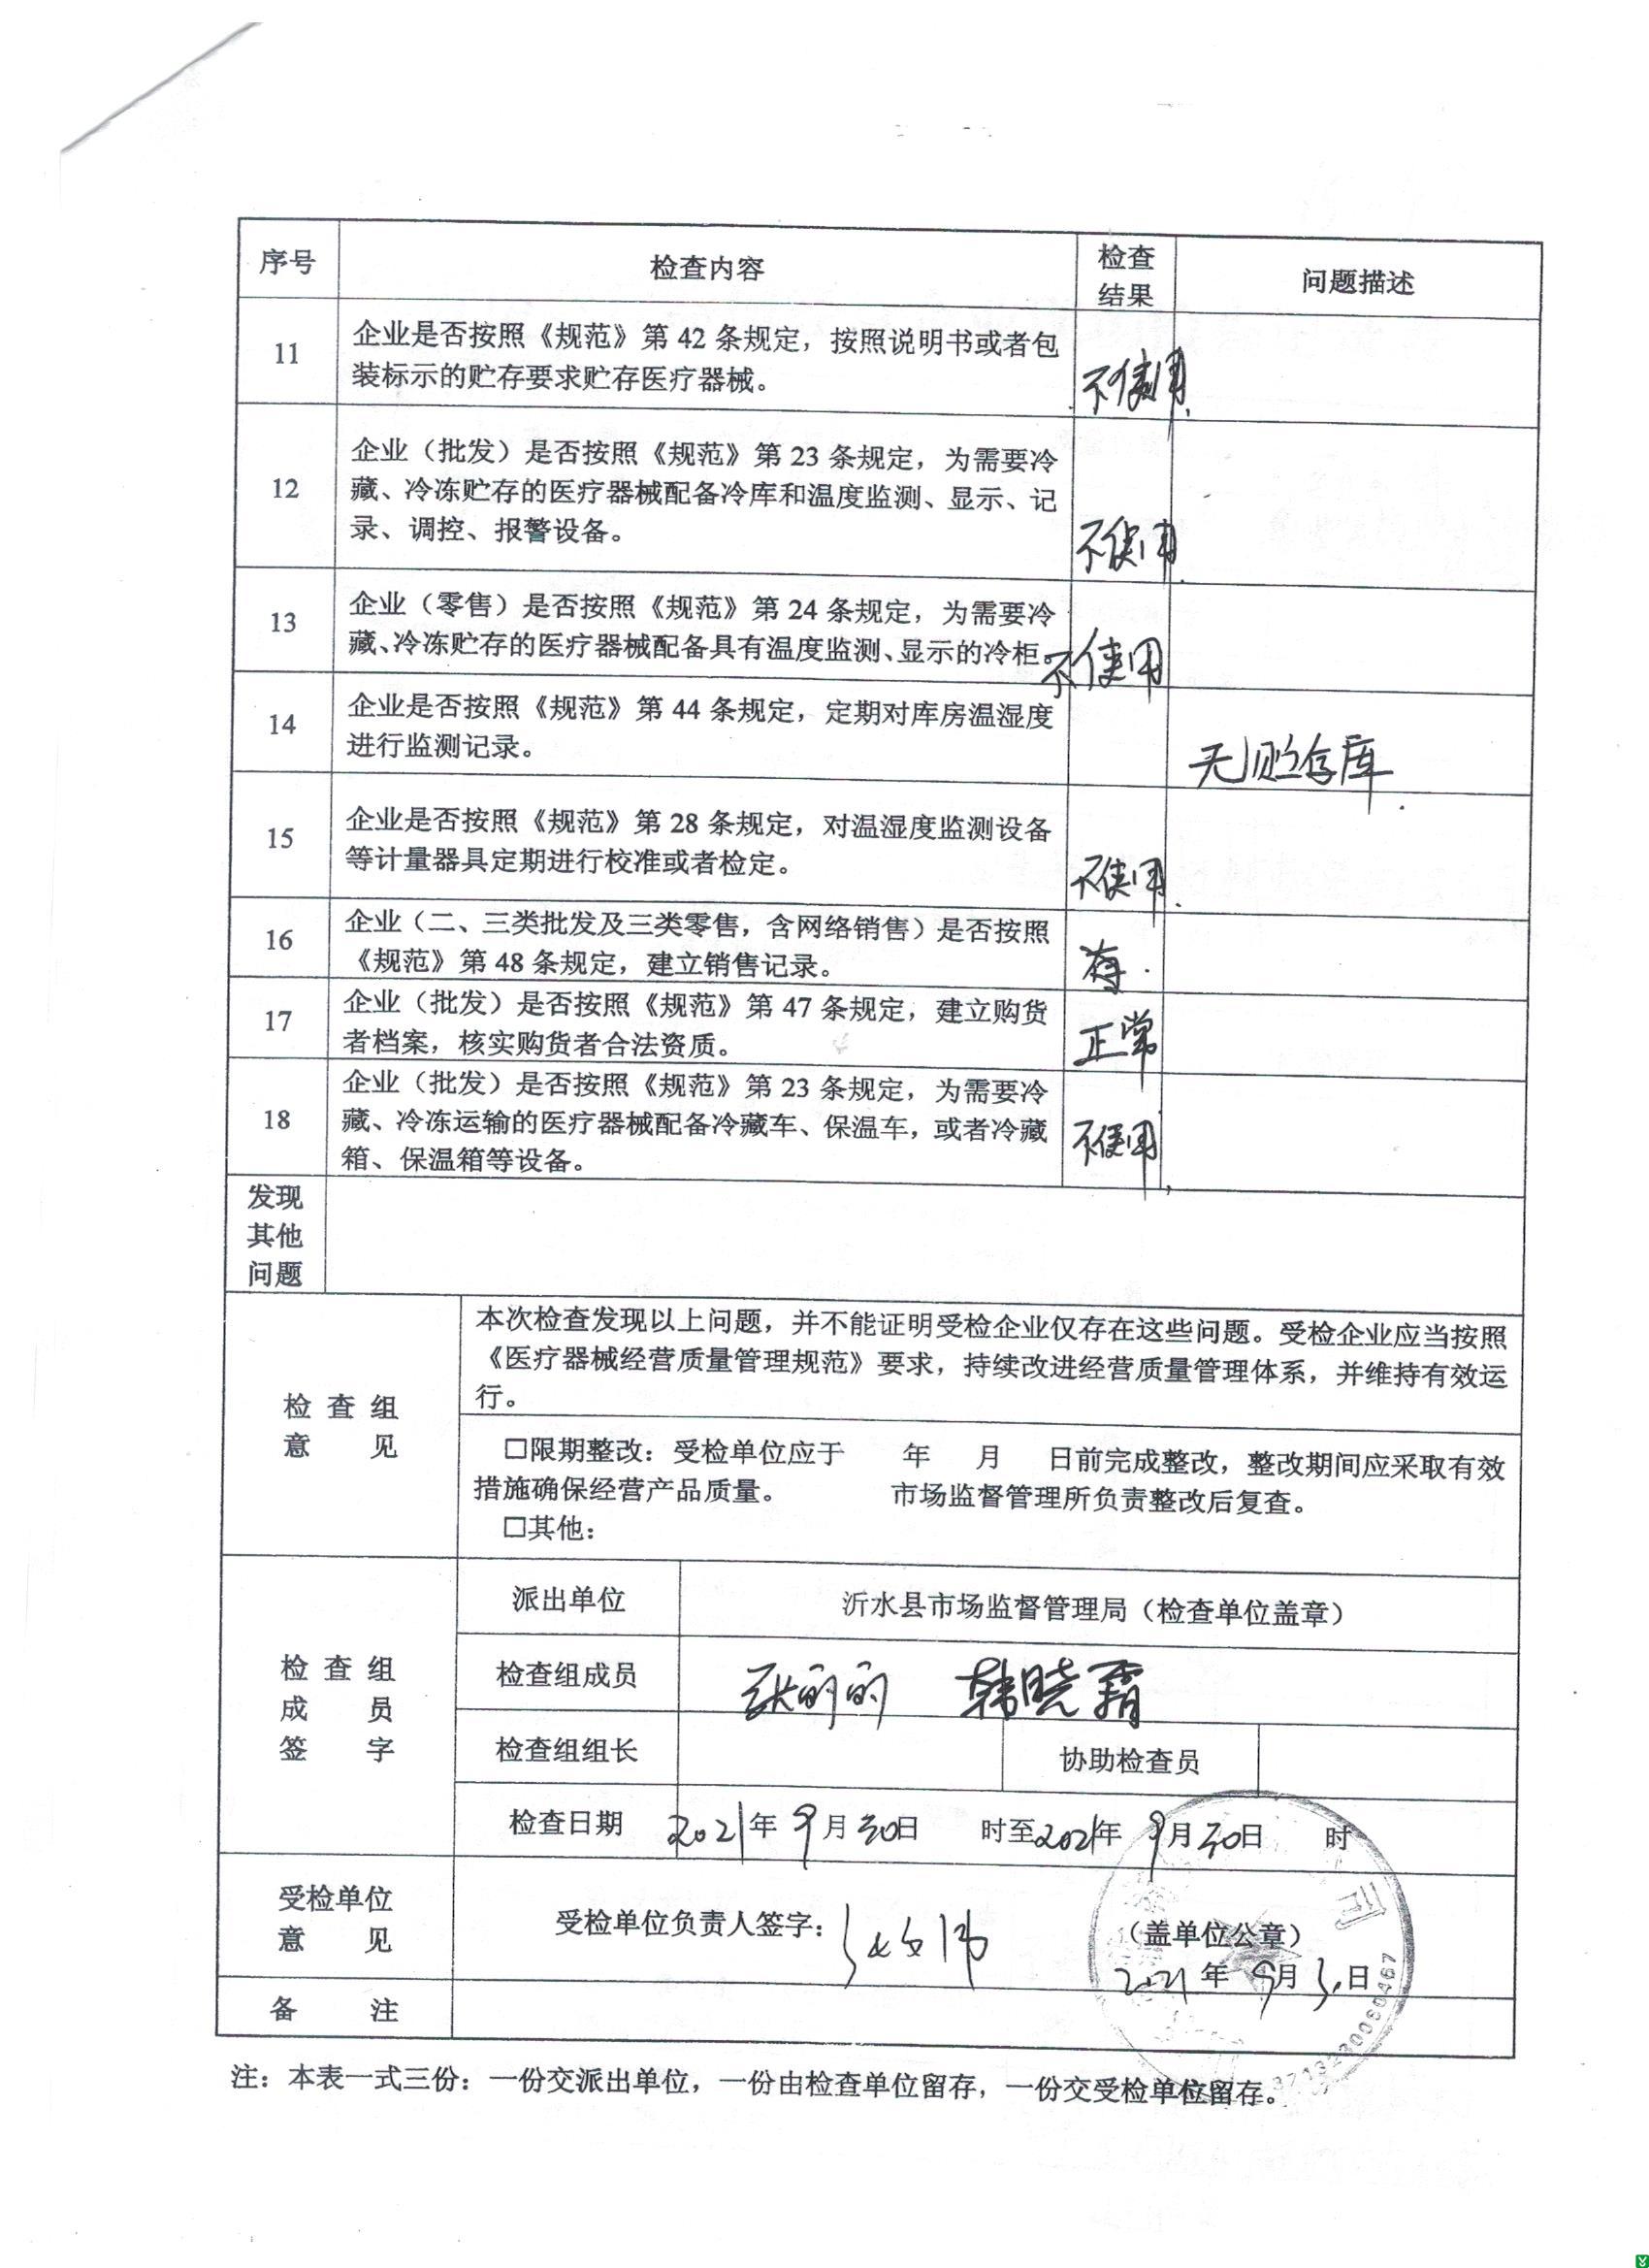 序号 检查内容 检查 问题描述
结果
11 企业是否按照《规范》第 42 条规定，按照说明书或者包
装标示的贮存要求贮存医疗器械。 不使用
12 企业（批发）是否按照《规范》第 23 条规定，为需要冷
藏、冷冻贮存的医疗器械配备冷库和温度监测、显示、记
录、调控、报警设备。 不使用
13 企业（零售）是否按照《规范》第 24 条规定，为需要冷
藏、冷冻贮存的医疗器械配备具有温度监测、显示的冷柜。 不使用
14 企业是否按照《规范》第 44 条规定，定期对库房温湿度
进行监测记录。 无贮存库
15 企业是否按照《规范》第 28 条规定，对温湿度监测设备
等计量器具定期进行校准或者检定。 不使用
16 企业（二、三类批发及三类零售，含网络销售）是否按照
《规范》第 48 条规定，建立销售记录。
17 企业（批发）是否按照《规范》第 47 条规定，建立购货
者档案，核实购货者合法资质。 正常
18 企业（批发）是否按照《规范》第 23 条规定，为需要冷
藏、冷冻运输的医疗器械配备冷藏车、保温车，或者冷藏
箱、保温箱等设备。 不使用
发现
其他
问题
检查组
意见
本次检查发现以上问题，并不能证明受检企业仅存在这些问题。受检企业应当按照
《医疗器械经营质量管理规范》要求，持续改进经营质量管理体系，并维持有效运
行。
□限期整改：受检单位应于 年 月 日前完成整改，整改期间应采取有效
措施确保经营产品质量。 市场监督管理所负责整改后复查。
□其他：
检查组
成员
签字
派出单位 沂水县市场监督管理局（检查单位盖章）
检查组成员 张丽丽 韩晓霜
检查组组长 协助检查员
检查日期 2021年 9月 30日 时至2021年 9月 30日 时
受检单位
意见
受检单位负责人签字： （盖单位公章）
2021 年 9月 30日
备注
注：本表一式三份：一份交派出单位，一份由检查单位留存，一份交受检单位留存。